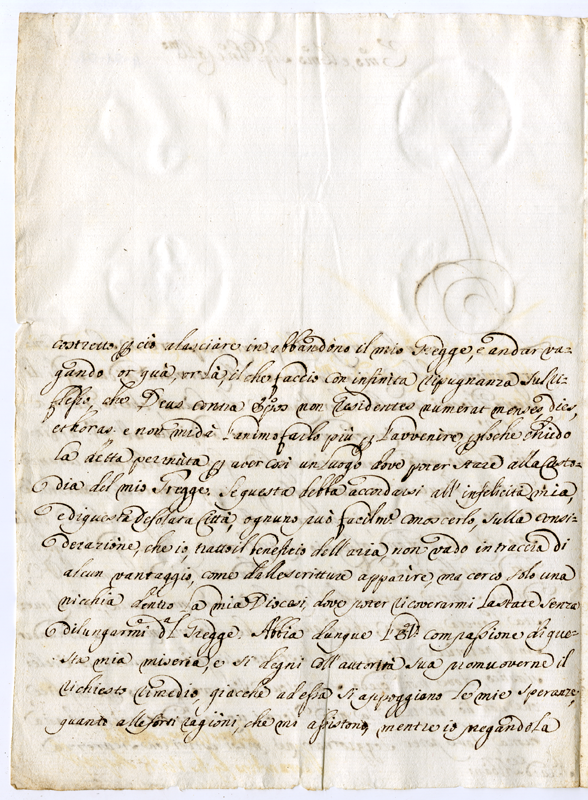 costretto p ciò a lasciare in abbandono il mio Gregge, e andar va-
gando or quà, or là, il che faccio con infinita repugnanza sul ri-
flesso, che Deus contra Epõs non Residentes numerat menses, dies,
et horas: e non mi dà l'animo farlo più p l'avvenire, p lo che chiedo
la detta permuta p aver così un luogo dove poter stare alla Custo-
dia del mio Gregge. Se questa debba accordarsi all'infelicità mia,
e di questa desolata Città, ognuno può facilmẽ conoscerlo, sulla consi-
derazione, che io, trattone il beneficio dell'aria, non vado in traccia di
alcun vantaggio, come dalle scritture apparire, ma cerco solo una
nicchia dentro la mia Diocesi, dove poter ricoverarmi l'Estate senza
dilungarmi dal Gregge. Abbia dunque compassione di que-
sta mia miseria, e si degni coll'autorità sua promuoverne il
richiesto rimedio, giacchè ad essa si appoggiano le mie speranze,
quanto alle forti ragioni, che mi assistono, mentre io negandola